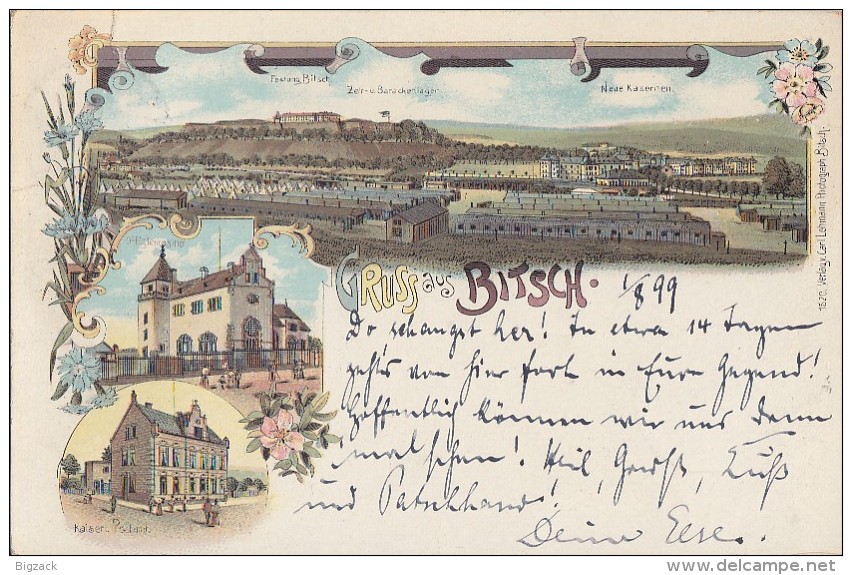 Festung Bitsch
Zelt- u. Barackenlager
Neue Kasernen
Offiziercasino
GRUSS aus BITSCH.
1/8 99
Da schaugst her! In etwa 14 Tagen
geht's von hier fort in Eure Gegend!
Hoffentlich können wir uns dann
mal sehen! Heil, Gruß, Kuß
und Patschhand!
Deine Else.
Kaiserl. Postamt.
1520 Verlag v. Carl Lehmann, Photograph, Bitsch.
Bigzack
delcampe.net